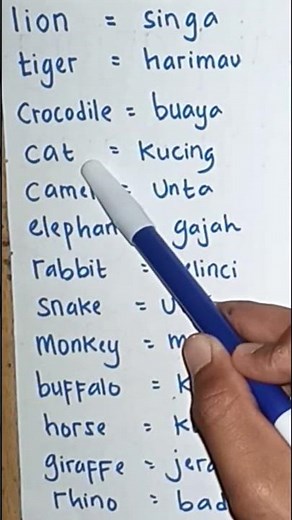 lion = singa
tiger = harimau
Crocodile = buaya
cat = Kucing
camel = Unta
elephan gajah
rabbit = linci
snake = U
monkey = m
buffalo = K
horse = K
giraffe = jera
rhino = bad